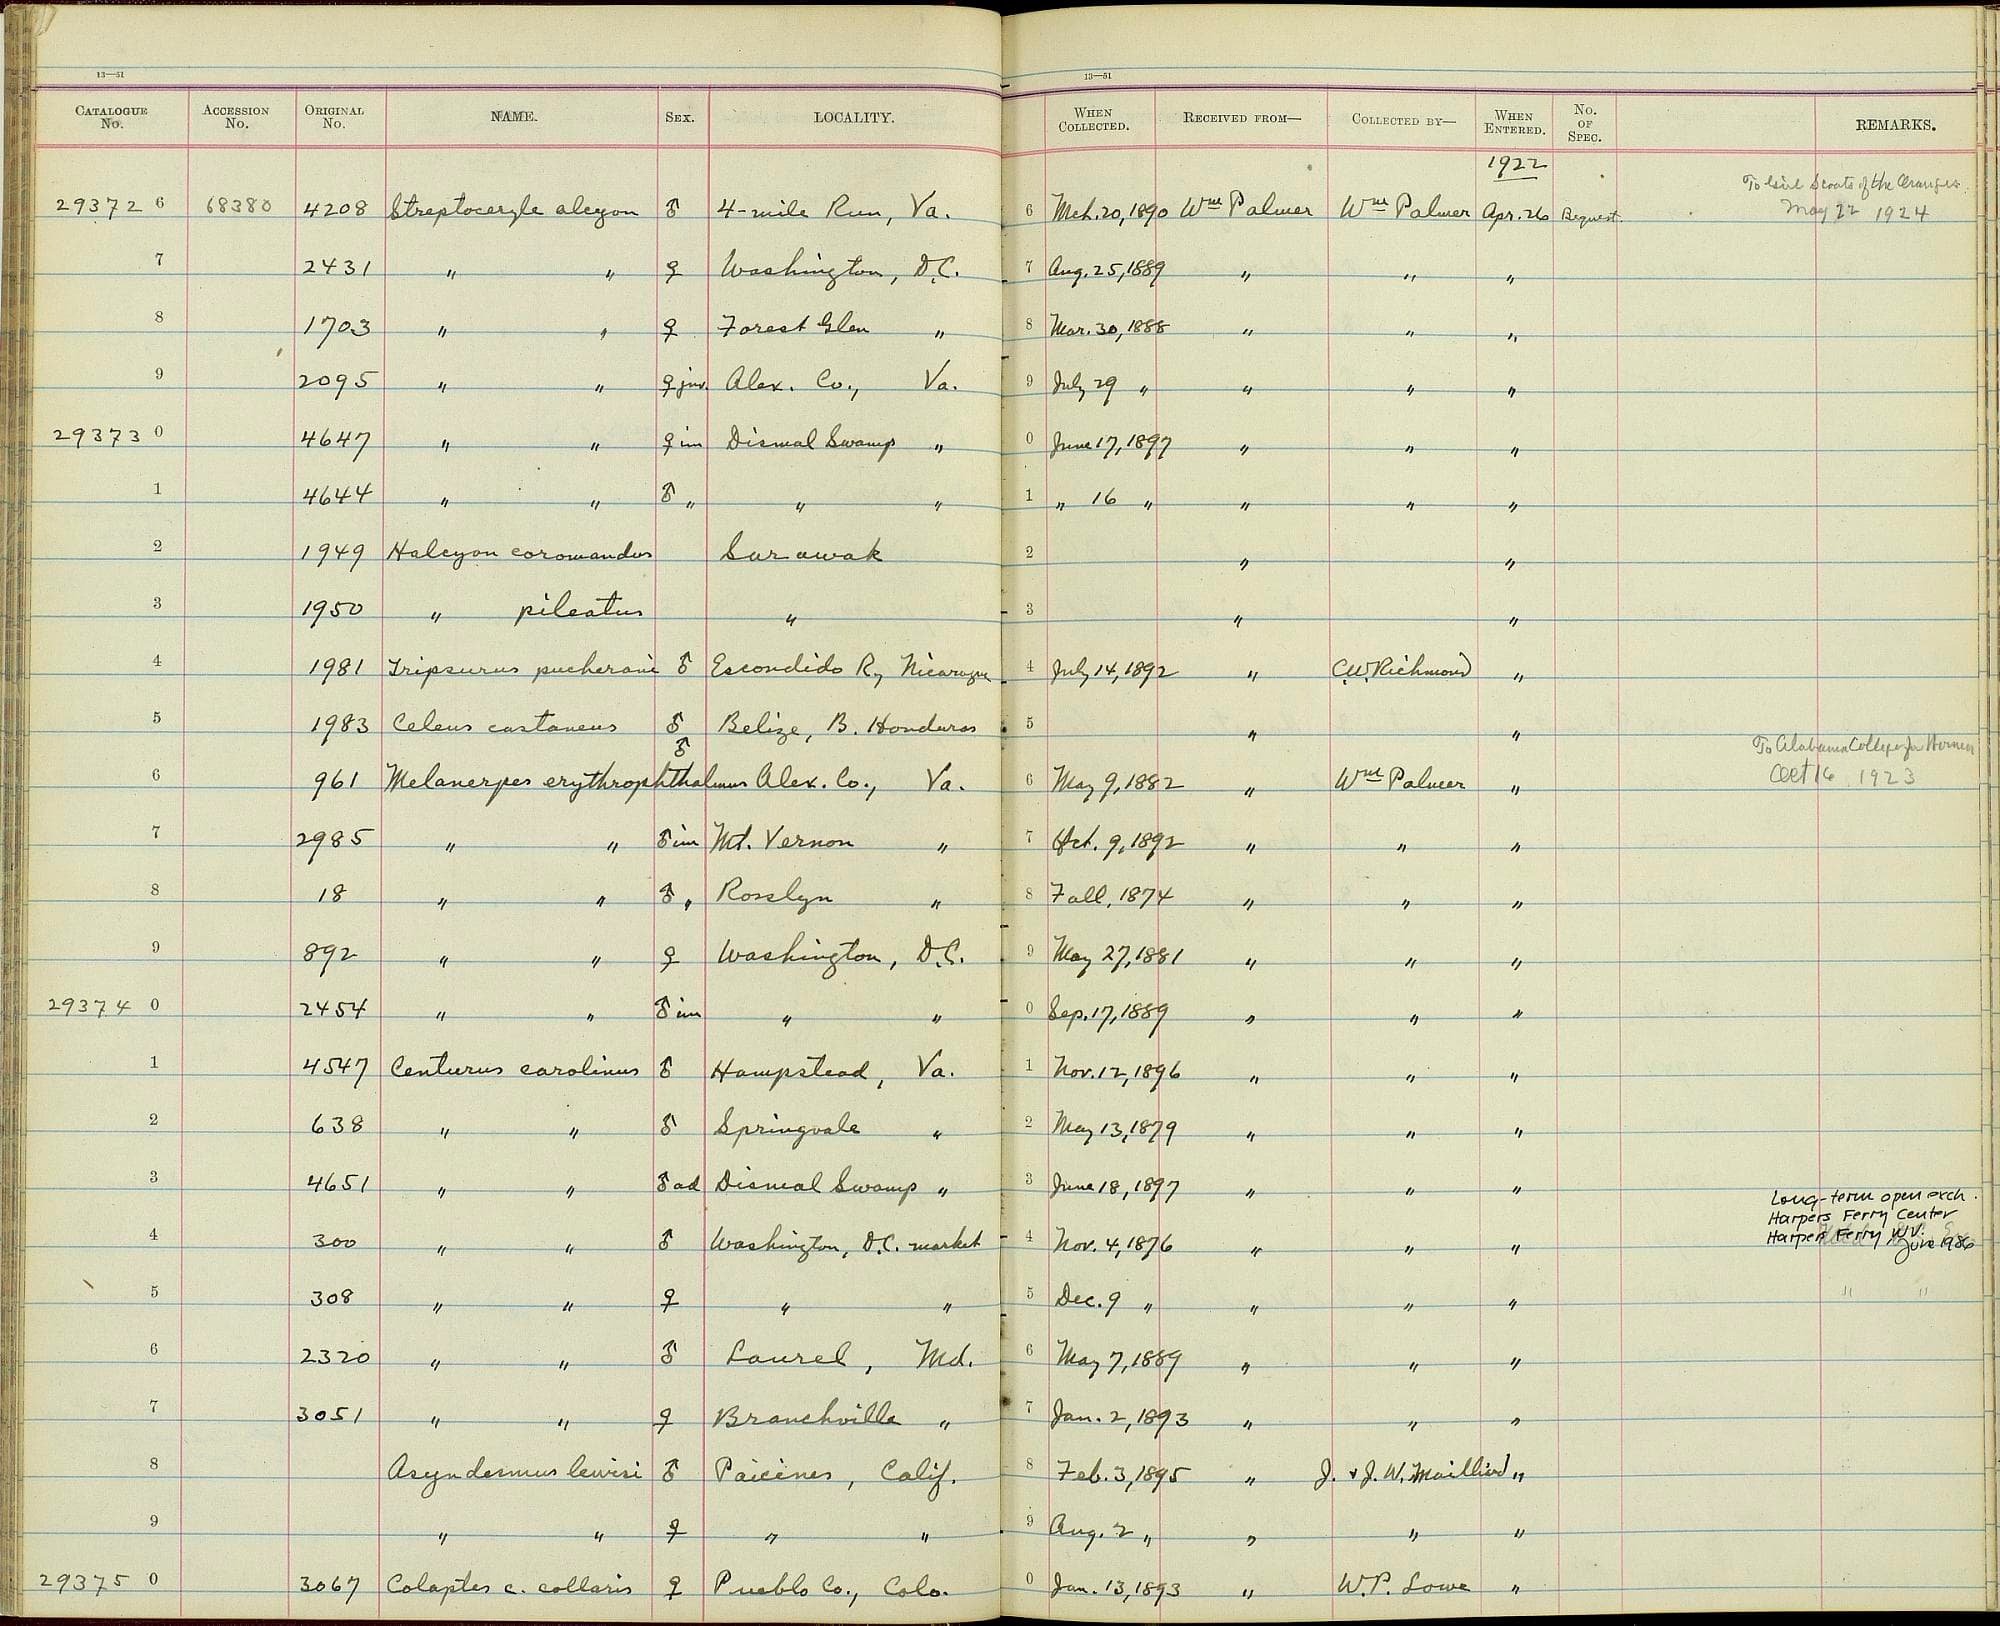 13—51
13—51
CATALOGUE No. ACCESSION No. ORIGINAL No. NAME. SEX. LOCALITY. WHEN COLLECTED. RECEIVED FROM— COLLECTED BY— WHEN ENTERED. No. OF SPEC. REMARKS.
1922
29372 6 68380 4208 Streptoceryle alcyon ♂ 4-mile Run, Va. 6 Mch. 20, 1890 Wm Palmer Wm Palmer Apr. 26 Bequest. To Girl Scouts of the Oranges May 22 1924
7 2431 " " ♀ Washington, D.C. 7 Aug. 25, 1889 " " "
8 1703 " " ♀ Forest Glen " 8 Mar. 30, 1888 " " "
9 2095 " " ♀ juv. Alex. Co., Va. 9 July 29 " " " "
29373 0 4647 " " ♀ im Dismal Swamp " 0 June 17, 1897 " " "
1 4644 " " ♂ " " " 1 " 16 " " " "
2 1949 Halcyon coromandus Sarawak 2 " "
3 1950 " pileatus " 3 " "
4 1981 Tripsurus pucherani ♂ Escondido R, Nicaragua 4 July 14, 1892 " C.W. Richmond "
5 1983 Celeus castaneus ♂ Belize, B. Honduras 5 " "
6 961 Melanerpes erythrophthalmus ♂ Alex. Co., Va. 6 May 9, 1882 " Wm Palmer " To Alabama College for Women Oct 16 1923
7 2985 " " ♂ im Mt. Vernon " 7 Oct. 9, 1892 " " "
8 18 " " " Rosslyn " 8 Fall, 1874 " " "
9 892 " " ♀ Washington, D.C. 9 May 27, 1881 " " "
29374 0 2454 " " ♂ im " " 0 Sep. 17, 1889 " " "
1 4547 Centurus carolinus ♂ Hampstead, Va. 1 Nov. 12, 1896 " " "
2 638 " " ♂ Springvale " 2 May 13, 1879 " " "
3 4651 " " ♂ ad Dismal Swamp " 3 June 18, 1897 " " "
4 300 " " ♂ Washington, D.C. market 4 Nov. 4, 1876 " " " Long-term open exch. Harpers Ferry Center Harpers Ferry WV. June 1986
5 308 " " ♀ " " 5 Dec. 9 " " " " " "
6 2320 " " ♂ Laurel, Md. 6 May 7, 1889 " " "
7 3051 " " ♀ Branchville " 7 Jan. 2, 1893 " " "
8 Asyndesmus lewisi ♂ Paicines, Calif. 8 Feb. 3, 1895 " J. & J. W. Mailliard "
9 " " ♀ " " 9 Aug. 2 " " " "
29375 0 3067 Colaptes c. collaris ♀ Pueblo Co., Colo. 0 Jan. 13, 1893 " W.P. Lowe "